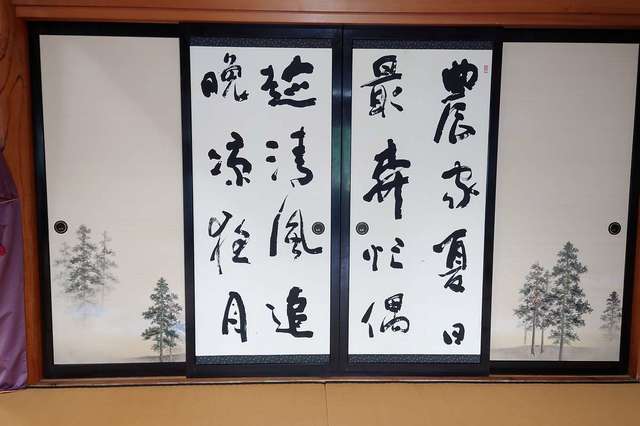 農家夏日
最奔忙偶
趁清風追
晚凉月